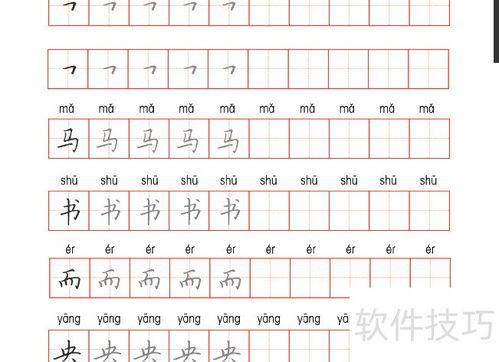 mǎ mǎ mǎ mǎ mǎ mǎ mǎ mǎ mǎ mǎ
马 马 马 马 马
shū shū shū shū shū shū shū shū shū shū
书 书 书 书 书
ér ér ér ér ér ér ér ér ér ér
而 而 而 而 而
yāng yāng yāng yāng yāng yāng yāng
央 央 央 央 央
软件技巧